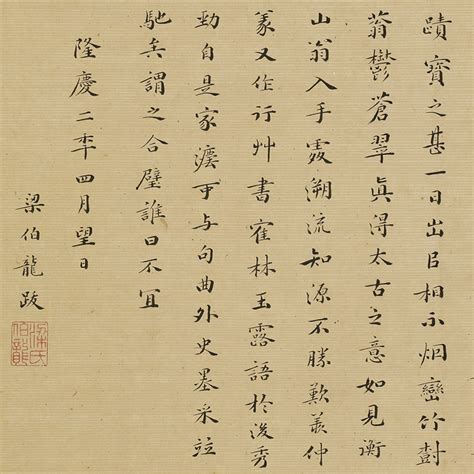 蹟寶之甚一日出㠯相示烟巒竹尌
蓊鬱蒼翠眞得太古之意如見衡
山翁入手處溯流知源不勝歎羨仲
篆又作行艸書寉林玉露語於後秀
勁自是家灋可与句曲外史墨采竝
馳矣謂之合璧誰曰不宜
隆慶二年四月望日
梁伯龍跋
梁氏
伯龍